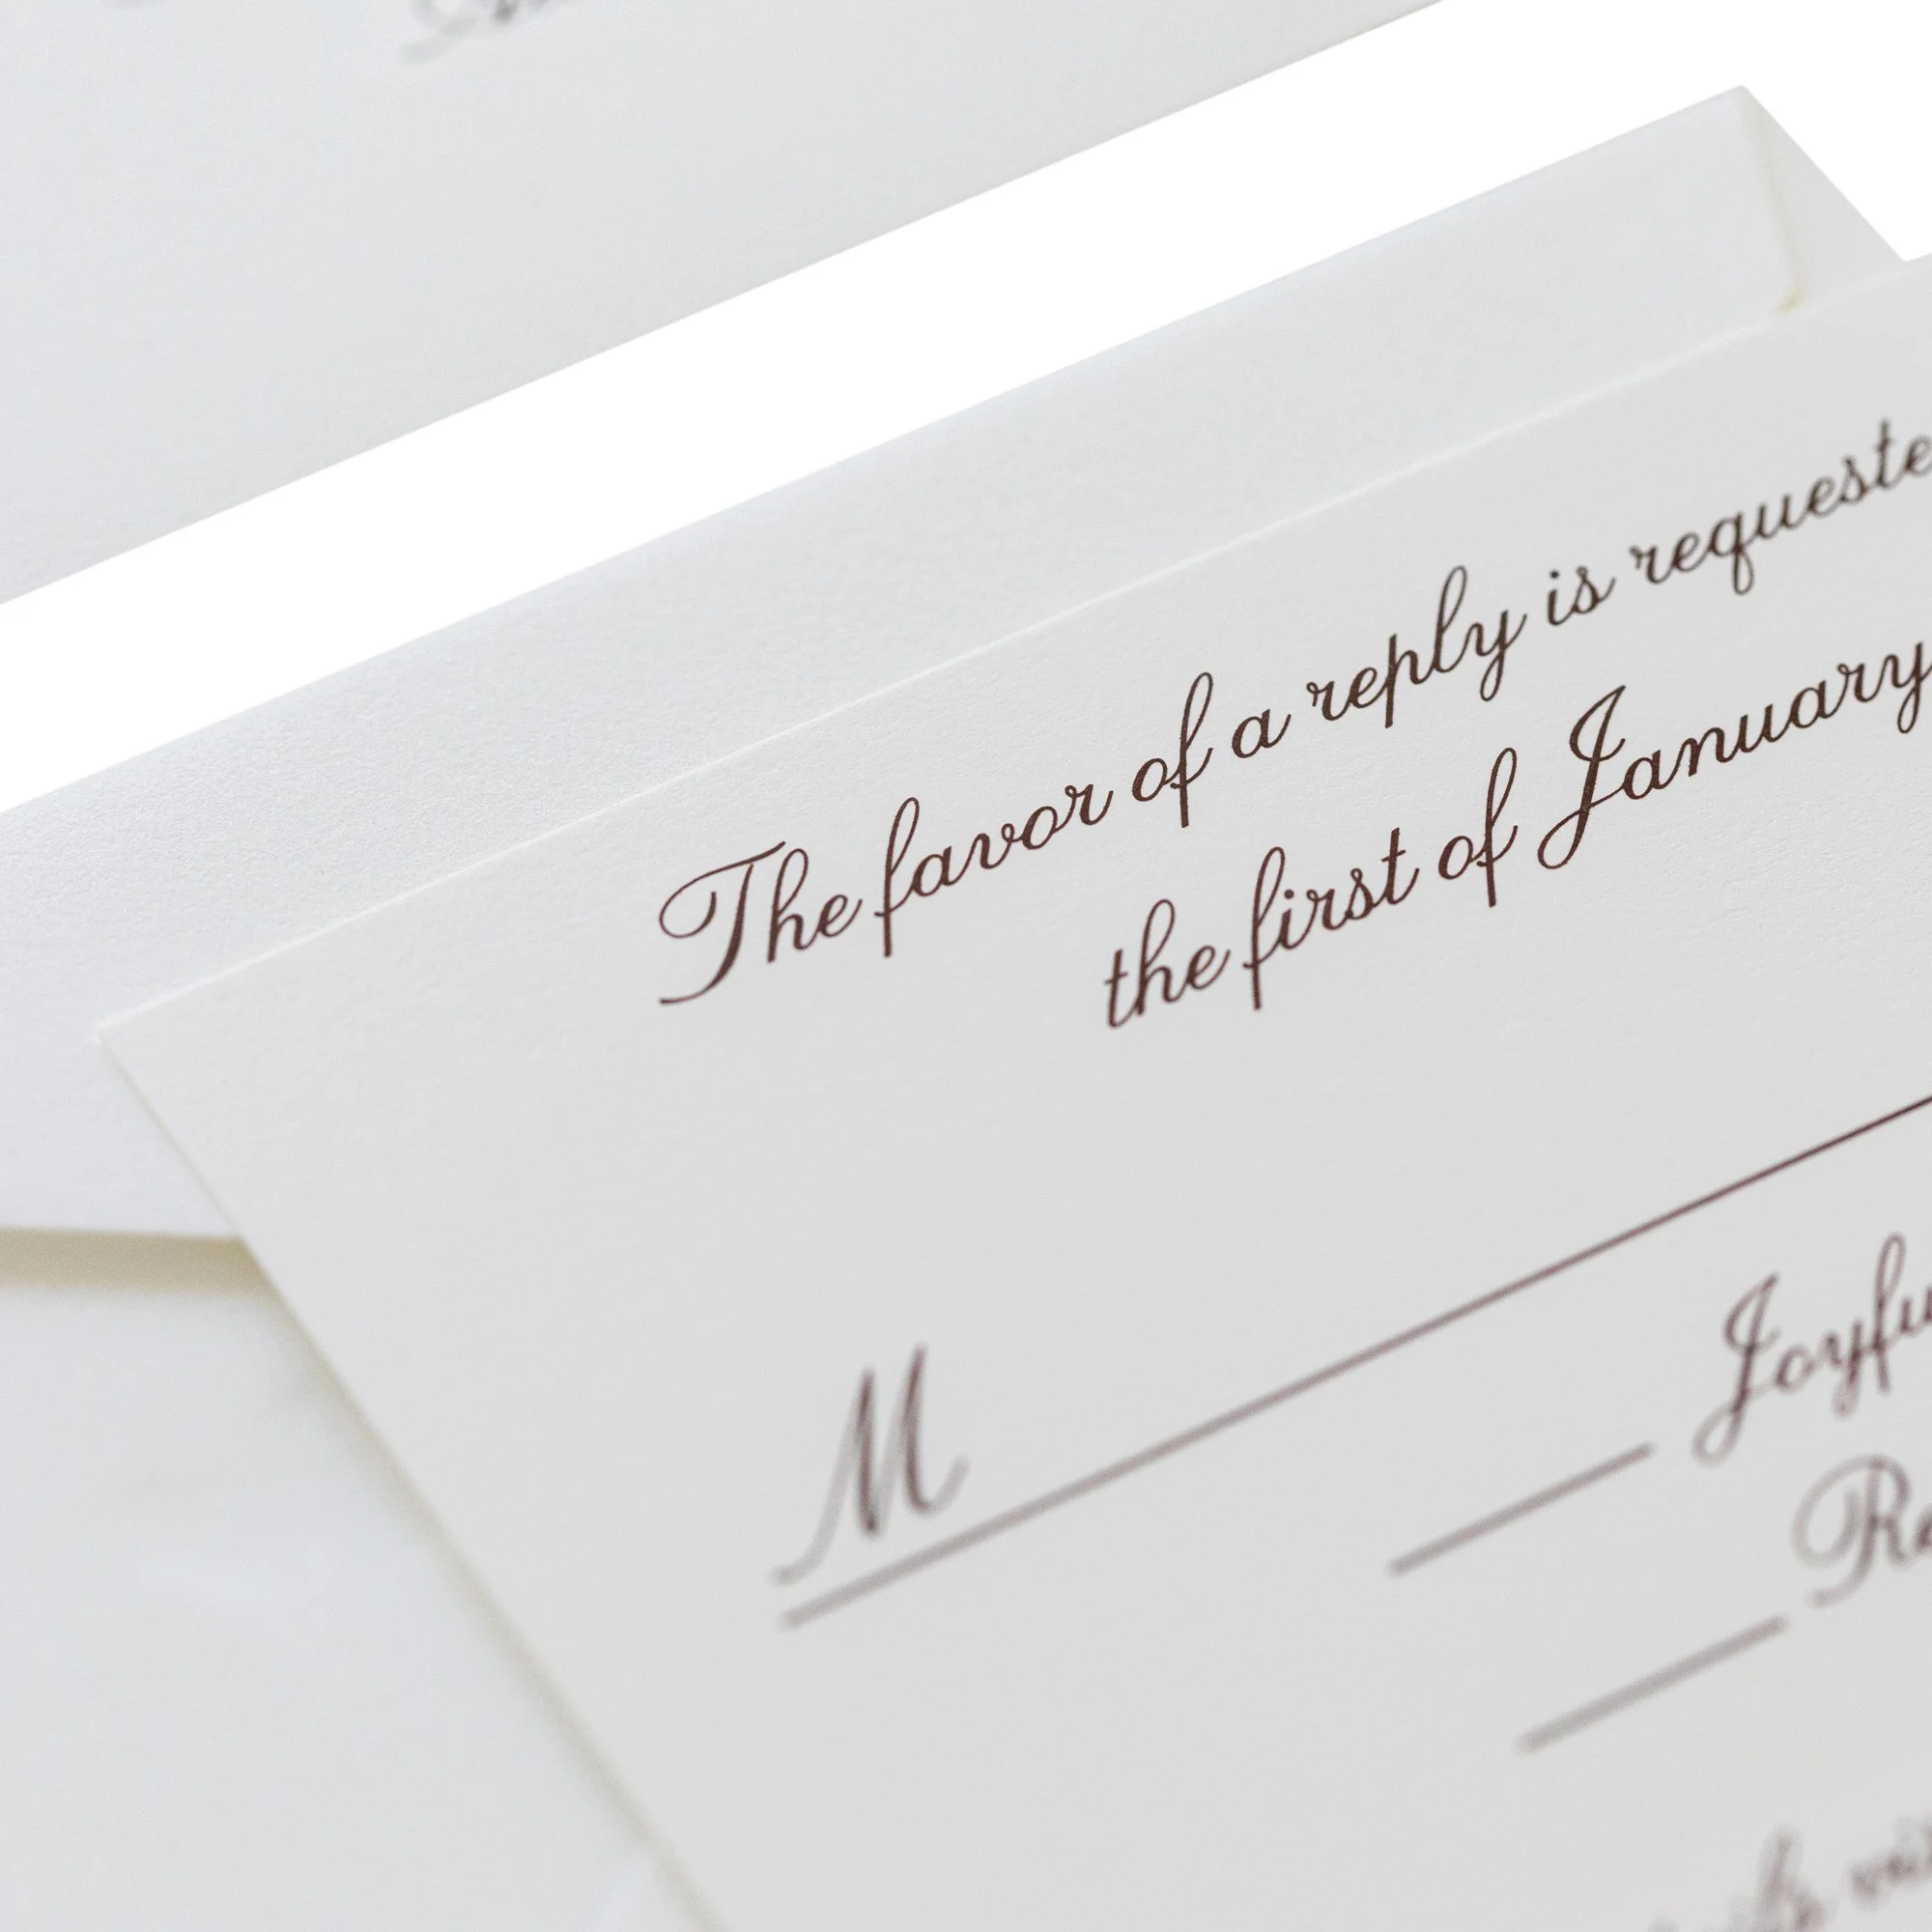 The favor of a reply is requeste
the first of January
M
Joyfu
Re